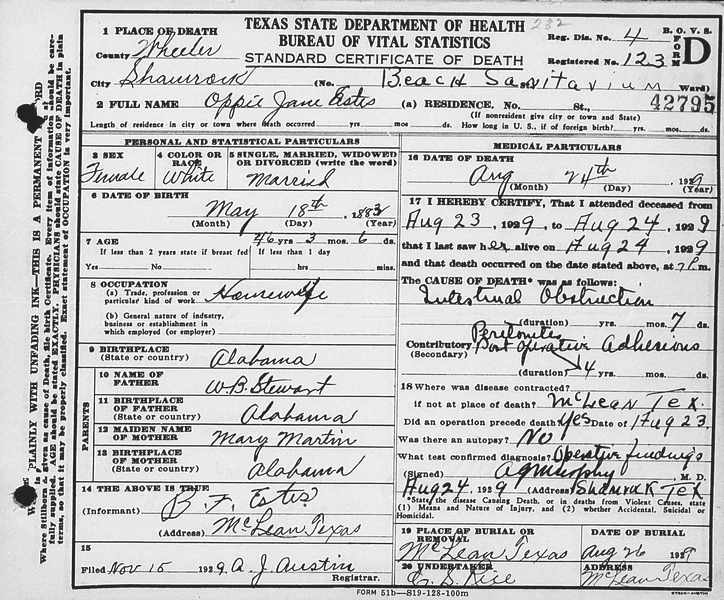 TEXAS STATE DEPARTMENT OF HEALTH 232
BUREAU OF VITAL STATISTICS
STANDARD CERTIFICATE OF DEATH
Reg. Dis. No. 4
Registered No. 123
B. O. V. S.
FORM D
1 PLACE OF DEATH
County Wheeler
City Shamrock (No. Beach Sanitarium Ward)
42795
2 FULL NAME Oppie Jane Estes (a) RESIDENCE. No. St.,
(If nonresident give city or town and State)
Length of residence in city or town where death occurred yrs. mos. ds. How long in U. S., if of foreign birth? yrs. mos. ds.
PERSONAL AND STATISTICAL PARTICULARS
3 SEX
Female
4 COLOR OR RACE
White
5 SINGLE, MARRIED, WIDOWED OR DIVORCED (write the word)
Married
6 DATE OF BIRTH
May 18th, 1883
(Month) (Day) (Year)
7 AGE 46 yrs 3 mos. 6 ds.
If less than 2 years state if breast fed If less than 1 day
Yes No hrs min.
8 OCCUPATION
(a) Trade, profession or particular kind of work Housewife
(b) General nature of industry, business or establishment in which employed (or employer)
9 BIRTHPLACE
(State or country) Alabama
PARENTS
10 NAME OF FATHER W. B. Stewart
11 BIRTHPLACE OF FATHER
(State or country) Alabama
12 MAIDEN NAME OF MOTHER Mary Martin
13 BIRTHPLACE OF MOTHER
(State or country) Alabama
14 THE ABOVE IS TRUE
(Informant) B. F. Estes
(Address) McLean Texas
15
Filed Nov 15 1929 A. J. Austin
Registrar.
MEDICAL PARTICULARS
16 DATE OF DEATH
Aug 24th 1929
(Month) (Day) (Year)
17 I HEREBY CERTIFY, That I attended deceased from
Aug 23, 1929, to Aug 24, 1929
that I last saw her alive on Aug 24, 1929
and that death occurred on the date stated above, at 7 P. m.
The CAUSE OF DEATH* was as follows:
Intestinal Obstruction
(duration) yrs. mos. 7 ds.
Peritonitis
Contributory Post Operative Adhesions
(Secondary)
(duration) 4 yrs. mos. ds.
18 Where was disease contracted?
if not at place of death? McLean Tex.
Did an operation precede death? Yes Date of Aug 23
Was there an autopsy? No
What test confirmed diagnosis? Operative findings
(Signed) M. D.
Aug 24, 1929 (Address) Shamrock Tex
*State the disease Causing Death, or in deaths from Violent Causes, state
(1) Means and Nature of Injury, and (2) whether Accidental, Suicidal or
Homicidal.
19 PLACE OF BURIAL OR REMOVAL
McLean Texas
DATE OF BURIAL
Aug 26 1929
20 UNDERTAKER
C. S. Rice
ADDRESS
McLean Texas
FORM 51b—819-128-100m